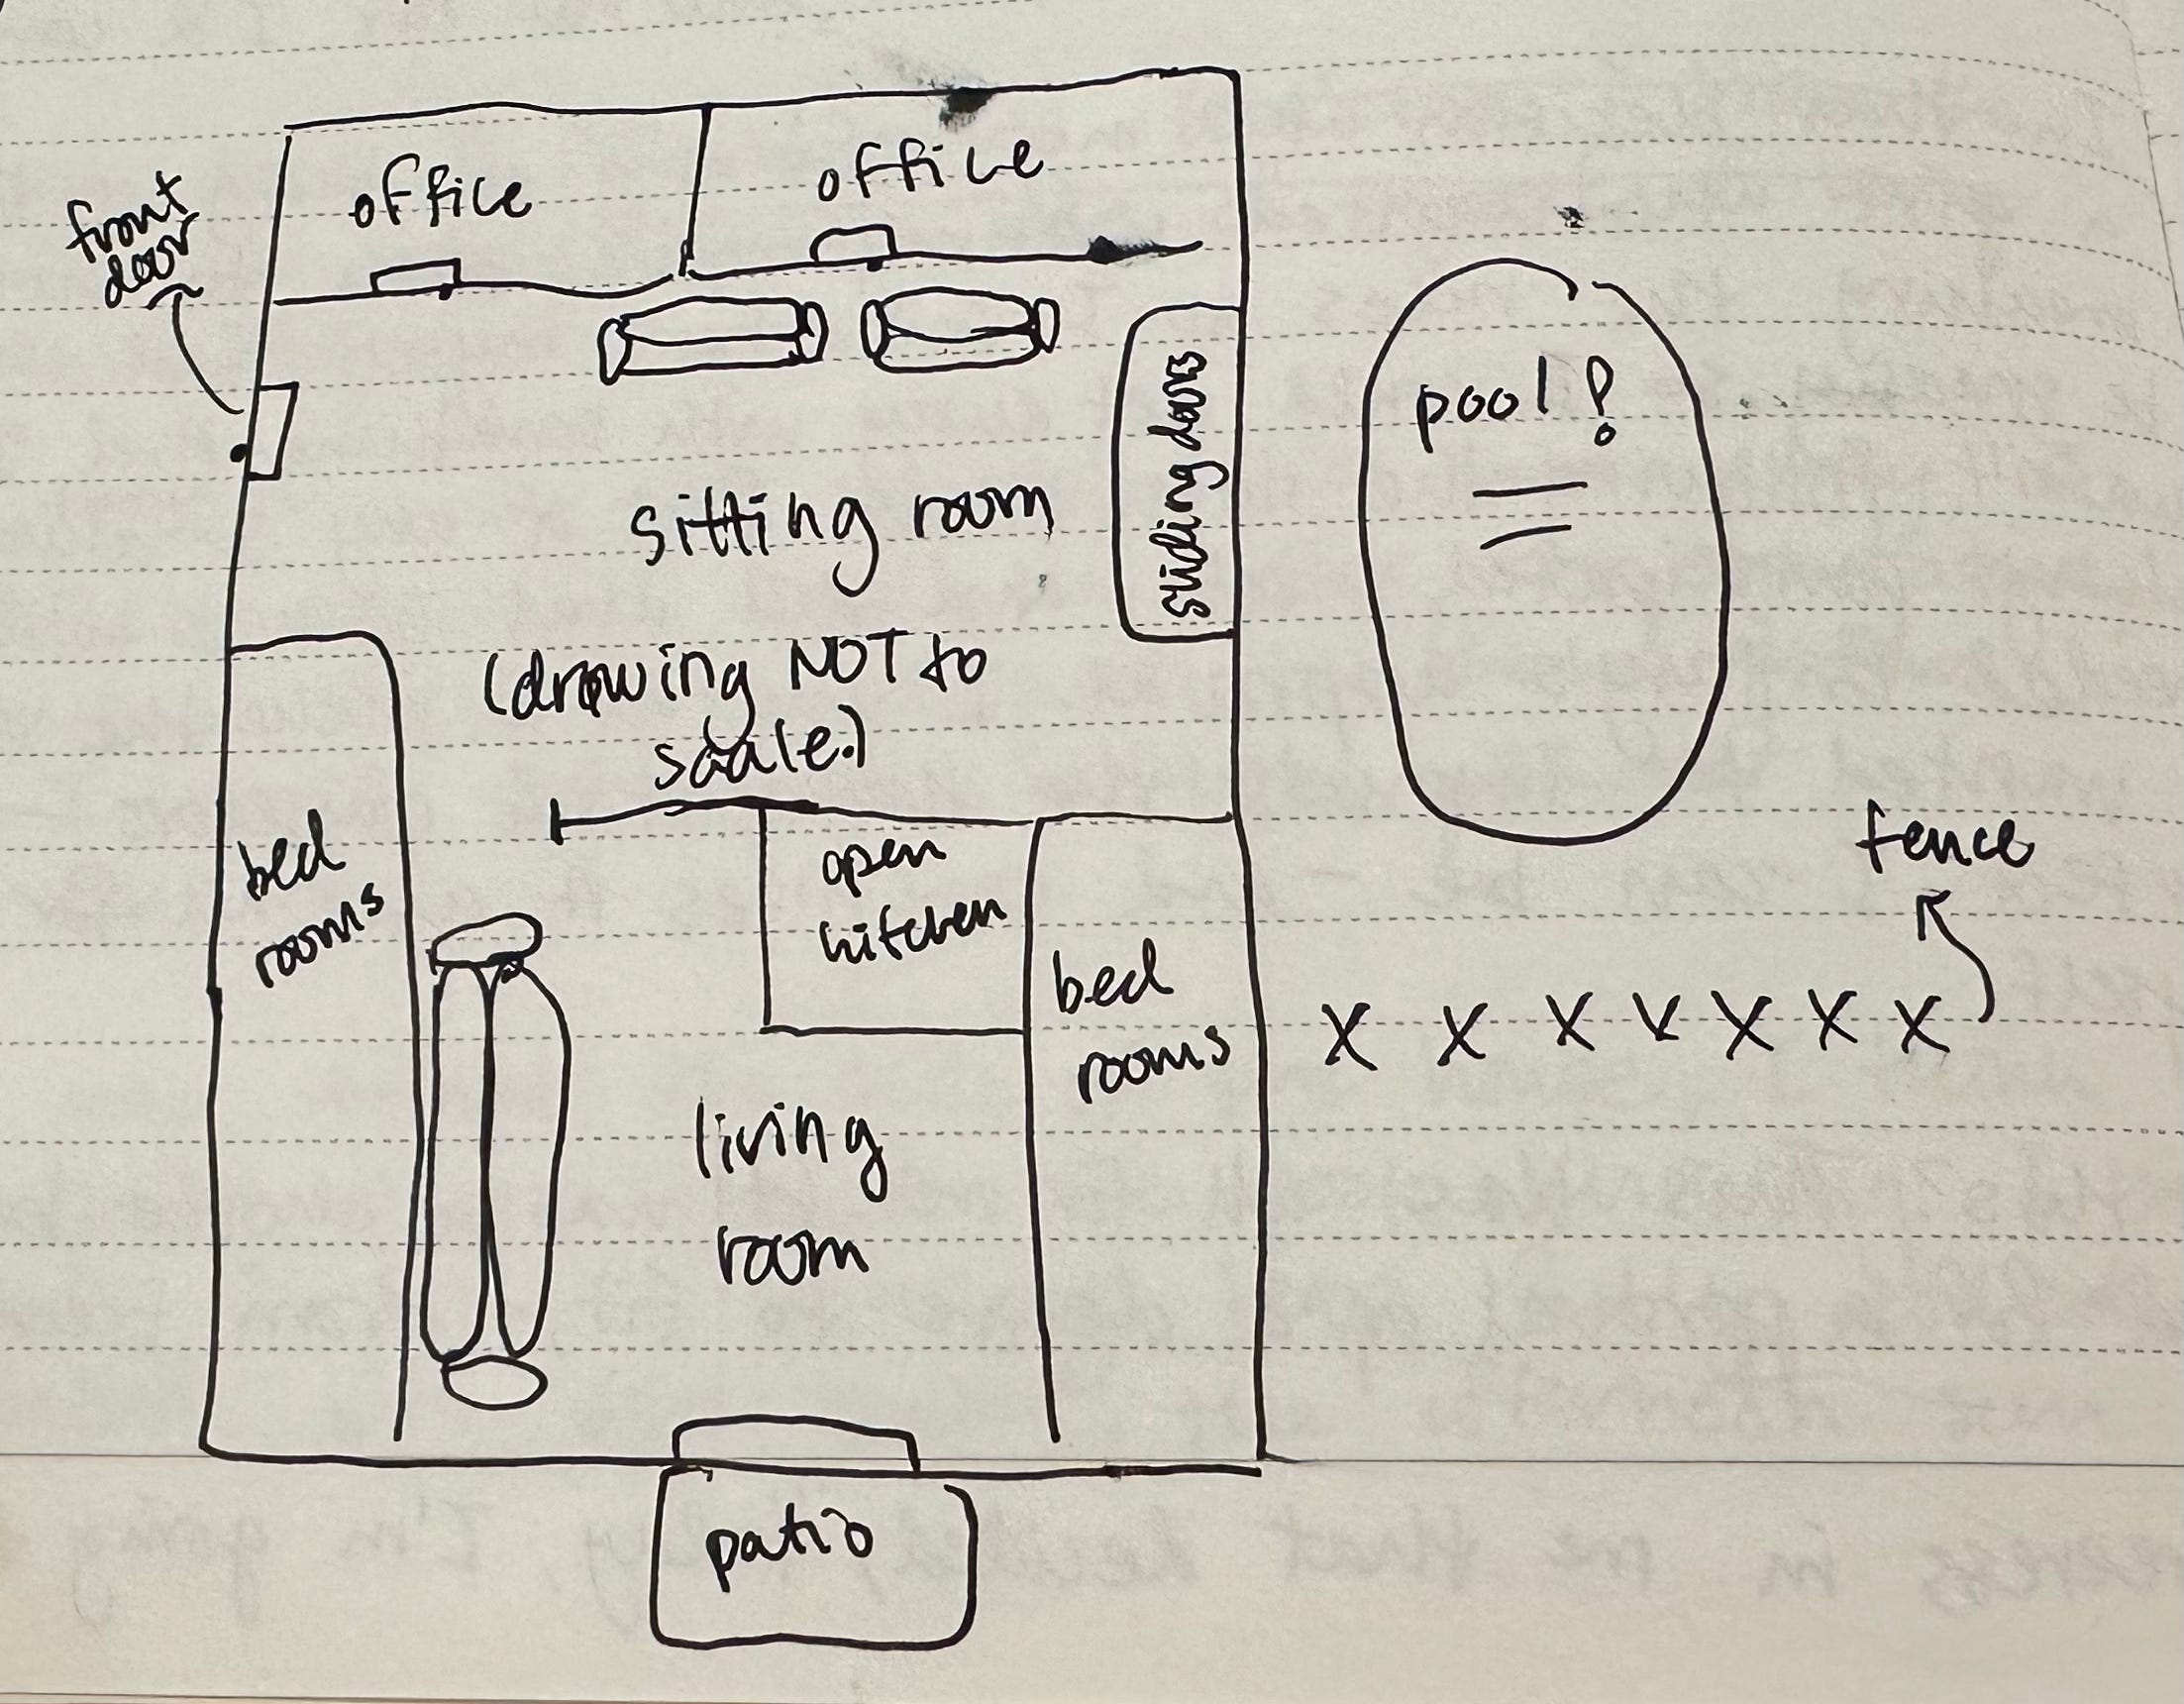 office
office
front
door
pool!
sliding doors
sitting room
(drawing NOT to
scale.)
bed
rooms
open
kitchen
fence
bed
rooms
x x x x x x x
living
room
patio